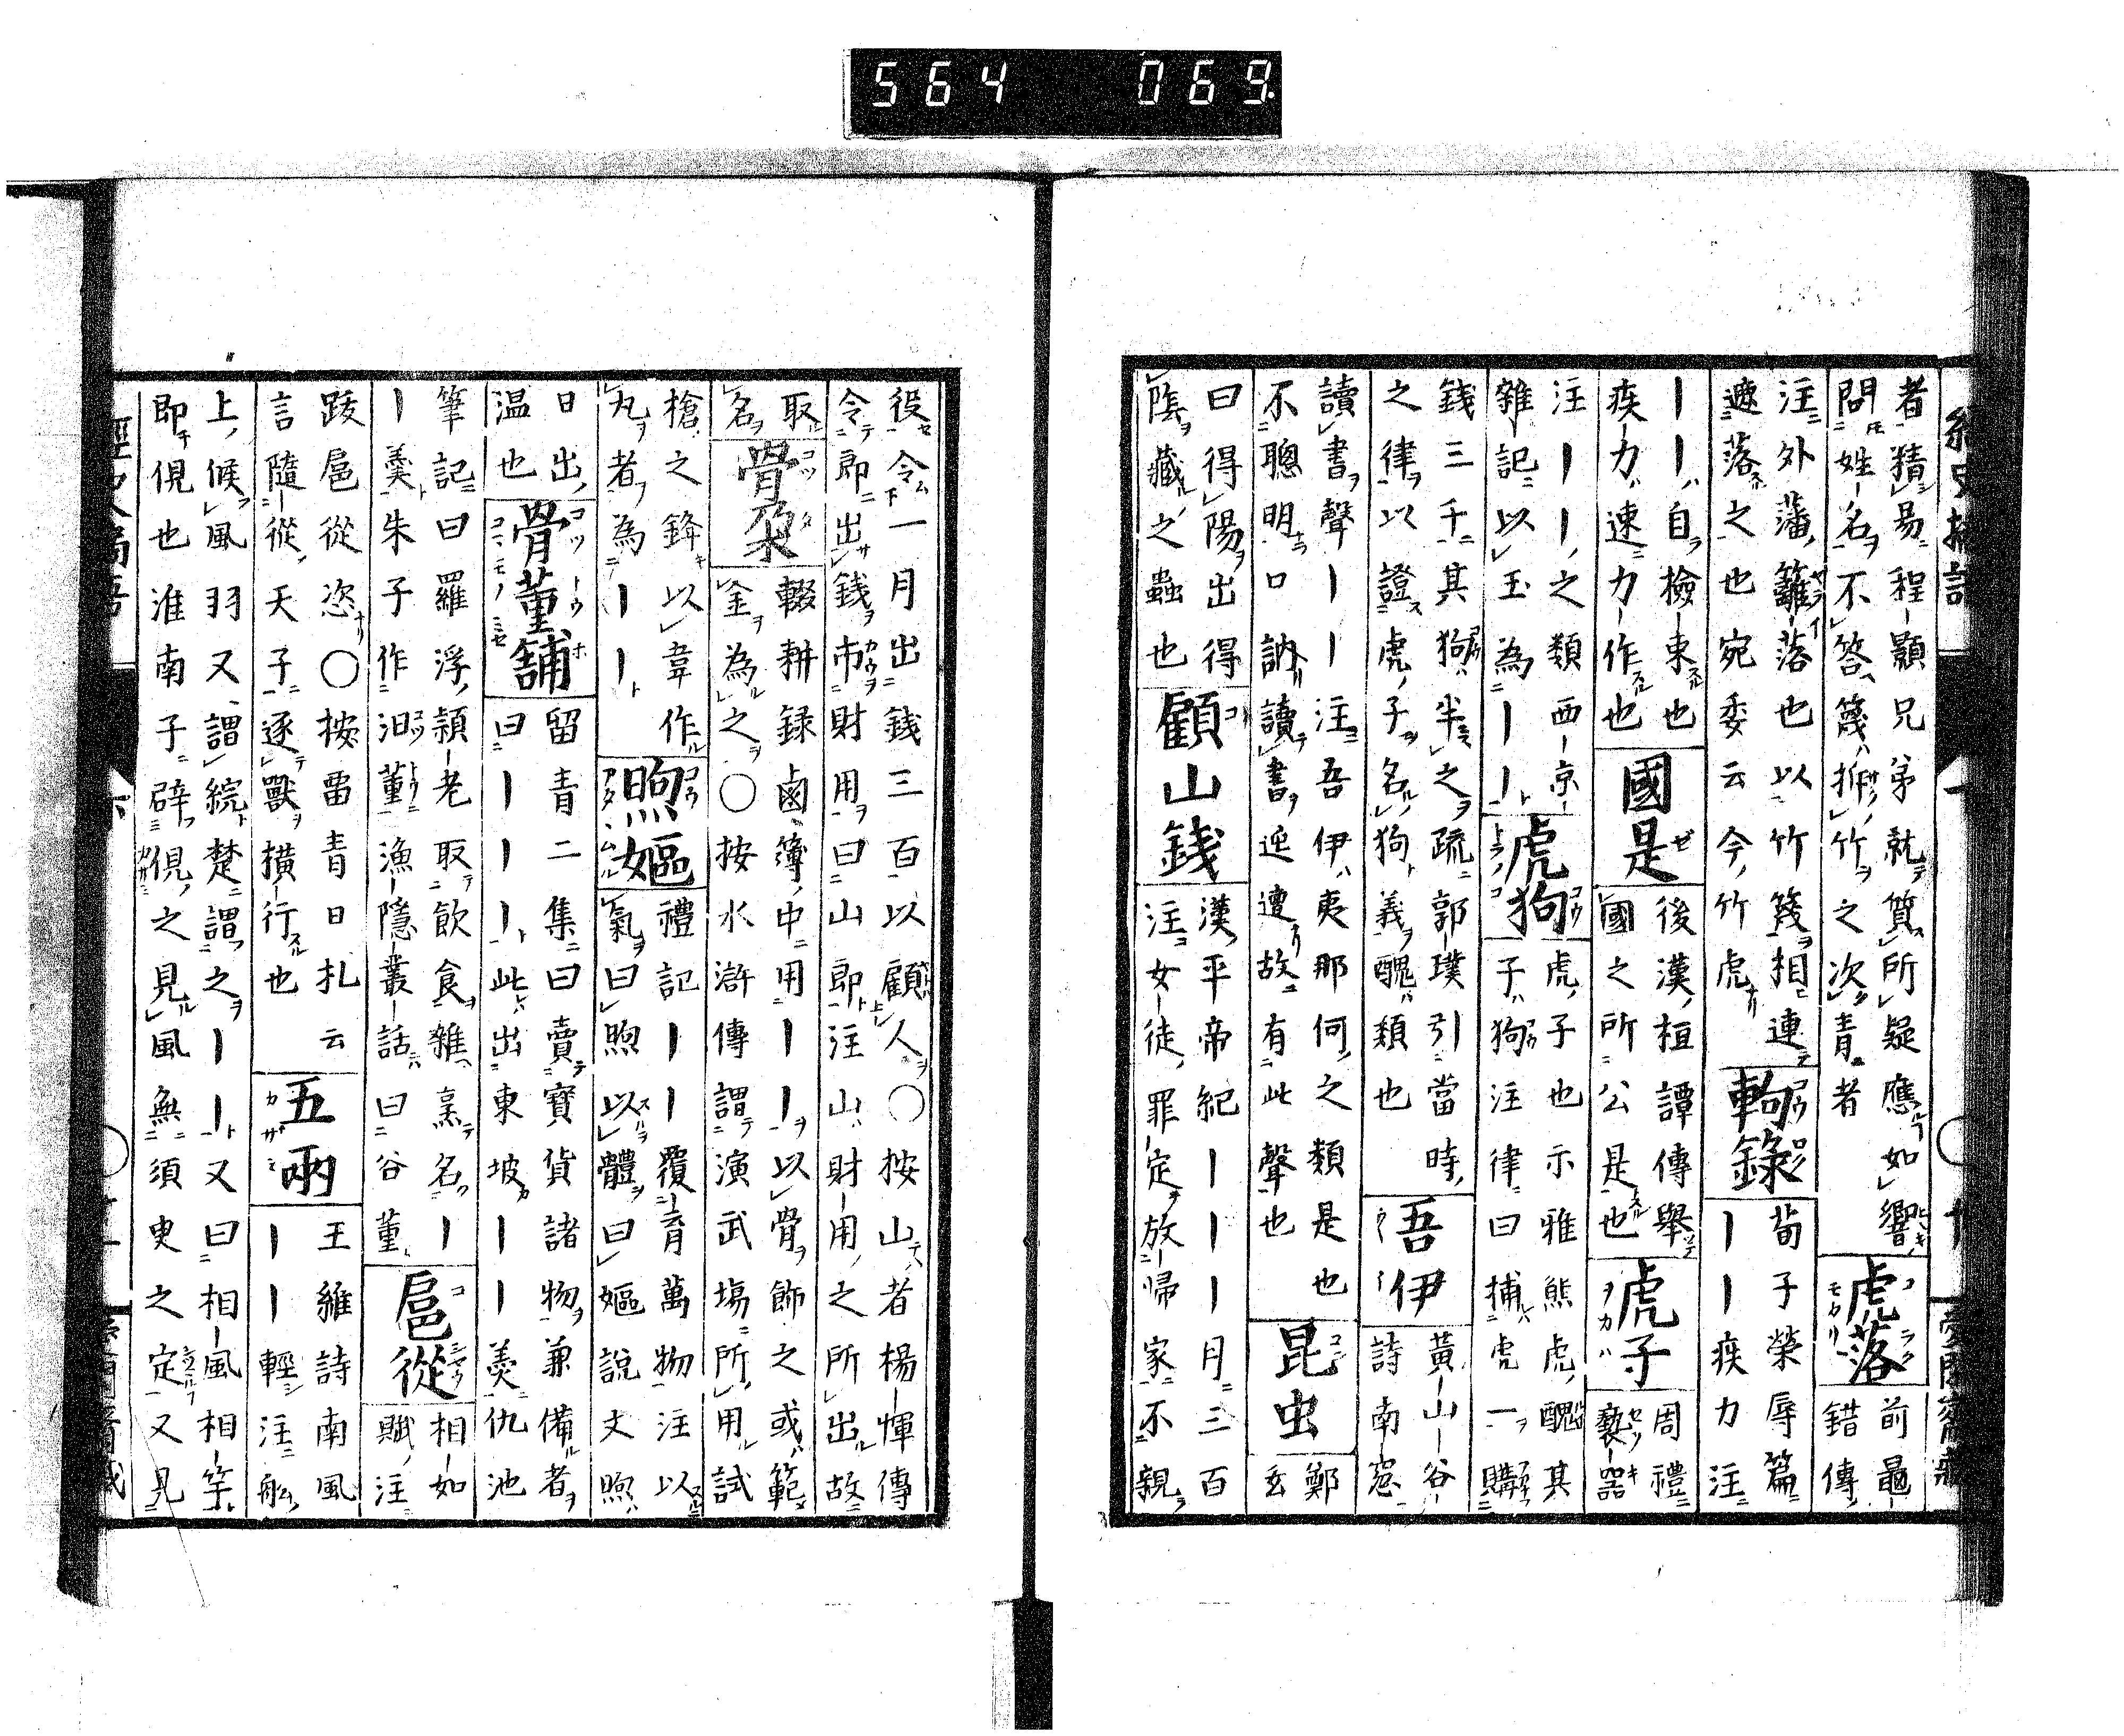 者猜易程顥兄弟就質所疑應如響
問姓名不答篾拆竹之次青者
虎落
前黽
錯傳
注外藩籬落也以竹篾相連
遮落之也宛委云今竹虎
軥錄
荀子榮辱篇
〡〡疾力注
〡〡自檢束也
疾力速力作也
國是
後漢桓譚傳舉
國之所公是也
虎子
周禮
褻器
注〡〡之類西京
雜記以玉為〡〡
虎狗
虎子也示雅熊虎醜其
子狗注律曰捕虎一購
錢三千其狗半之疏郭璞引當時
之律以證虎子名狗義醜類也
吾伊
黃山谷
詩南窓
讀書聲〡〡注吾伊夷那何之類是也
不聰明口訥讀書迍邅故有此聲也
昆虫
鄭
玄
曰得陽出得
陰藏之蟲也
顧山錢
漢平帝紀〡〡〡月三百
注女徒罪定放歸家不親
役令一月出錢三百以顧人○按山者楊惲傳
令郎出錢市財用曰山郎注山財用之所出故
取
名
骨朶
輟耕録鹵簿中用〡〡以骨飾之或範
金為之○按水滸傳謂演武場所用試
槍之鋒以韋作
丸者為〡〡
煦嫗
禮記〡〡覆育萬物注以
氣曰煦以體曰嫗說文煦
日出
温也
骨董舖
留青二集曰賣寶貨諸物兼備者
曰〡〡〡此出東坡〡〡羮仇池
筆記曰羅浮頴老取飲食雜烹名〡
〡羮朱子作汩董漁隱叢話曰谷董
扈從
相如
賦注
跋扈從恣○按畱青日札云
言隨從天子逐獸橫行也
五兩
王維詩南風
〡〡輕注舩
上候風羽又謂綄楚謂之〡〡又曰相風相竿
即俔也淮南子辟俔之見風無須臾之定又見
564 069